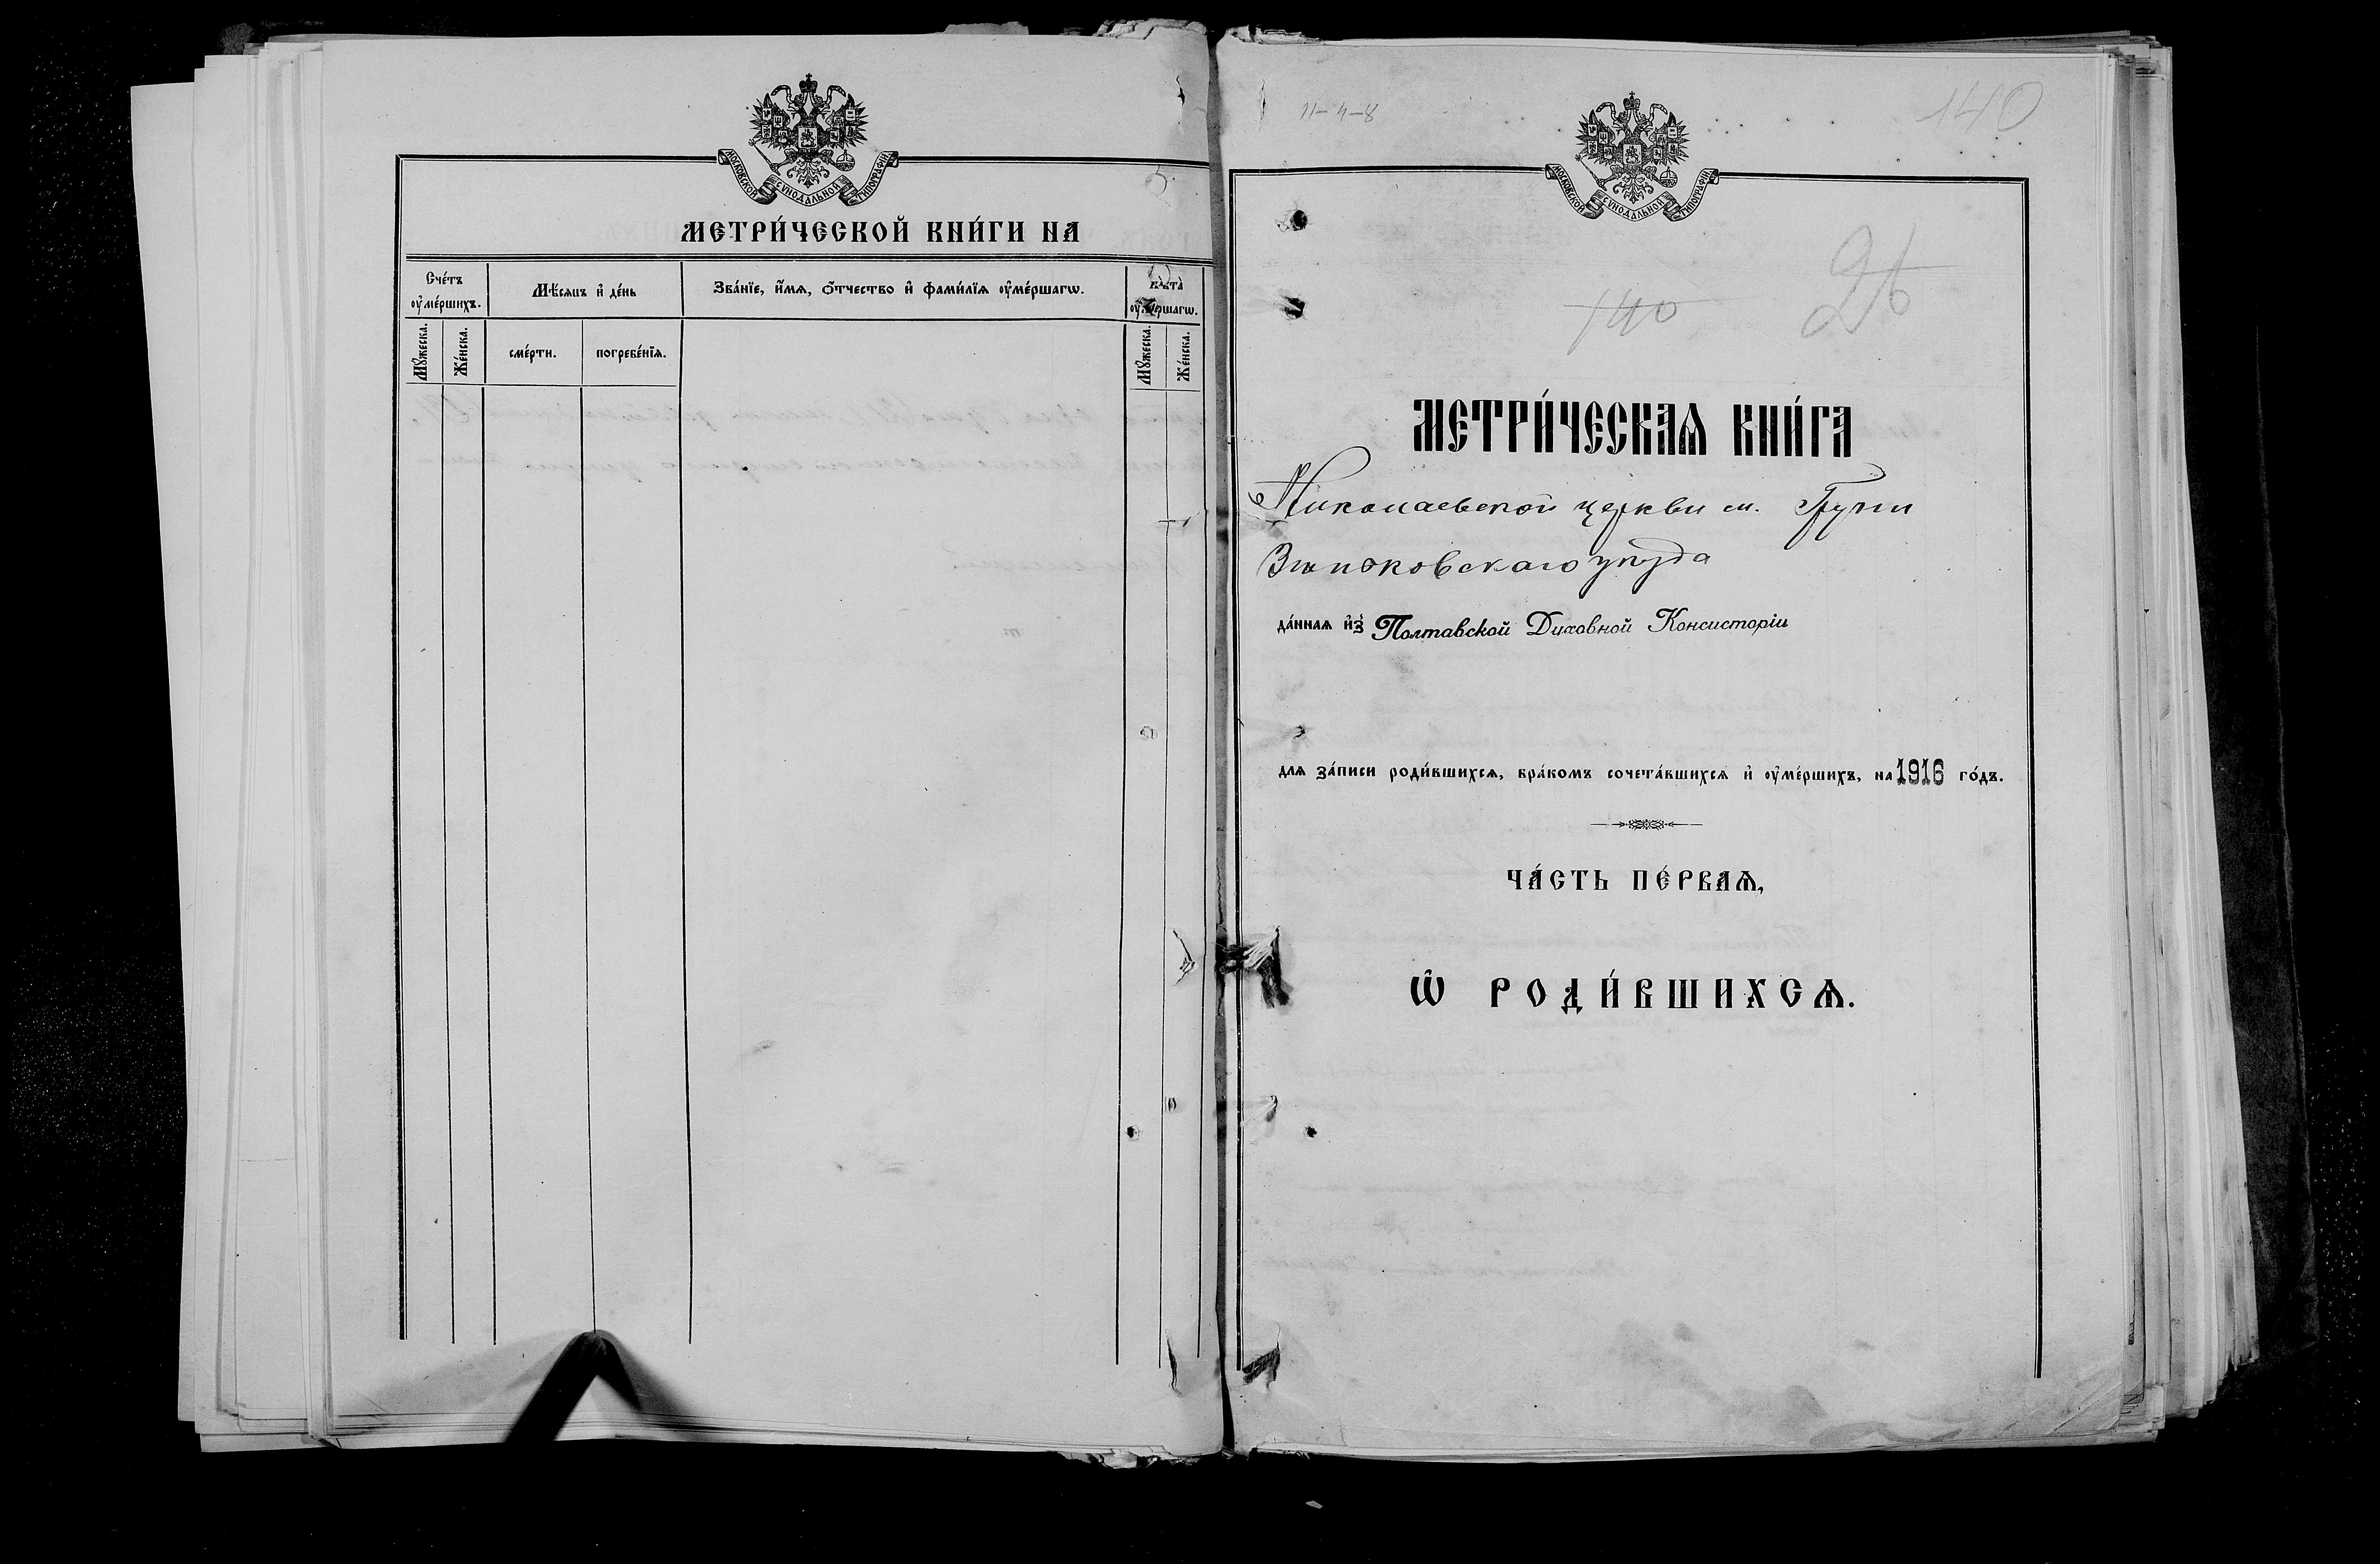 МОСКОВСКОЙ СѴНОДАЛЬНОЙ ТИПОГРАФІИ
МЕТРИ́ЧЕСКОЙ КНИ́ГИ НА
Сче́тъ ᲂу҆ме́ршихъ.
Мѣ́сяцъ и҆ де́нь
Зва́нїе, и҆́мѧ, ѻ҆́тчество и҆ фами́лїѧ ᲂу҆ме́ршагѡ.
Лѣ́та ᲂу҆ме́ршагѡ.
Мꙋ́жеска.
Же́нска.
сме́рти.
погребе́нїѧ.
Мꙋ́жеска.
Же́нска.
11-4-8
140
МОСКОВСКОЙ СѴНОДАЛЬНОЙ ТИПОГРАФІИ
140
26
МЕТРИ́ЧЕСКАѦ КНИ́ГА
Николаевской церкви м. Груни
Зѣньковскаго уѣзда
да́ннаѧ и҆з̾ Полтавской Духовной Консисторіи
для за́писи роди́вшихсѧ, бра́комъ сочета́вшихсѧ и҆ ᲂу҆ме́ршихъ, на 1916 го́дъ.
ЧА́СТЬ ПЕ́РВАѦ,
Ѡ҆ РОДИ́ВШИХСѦ.